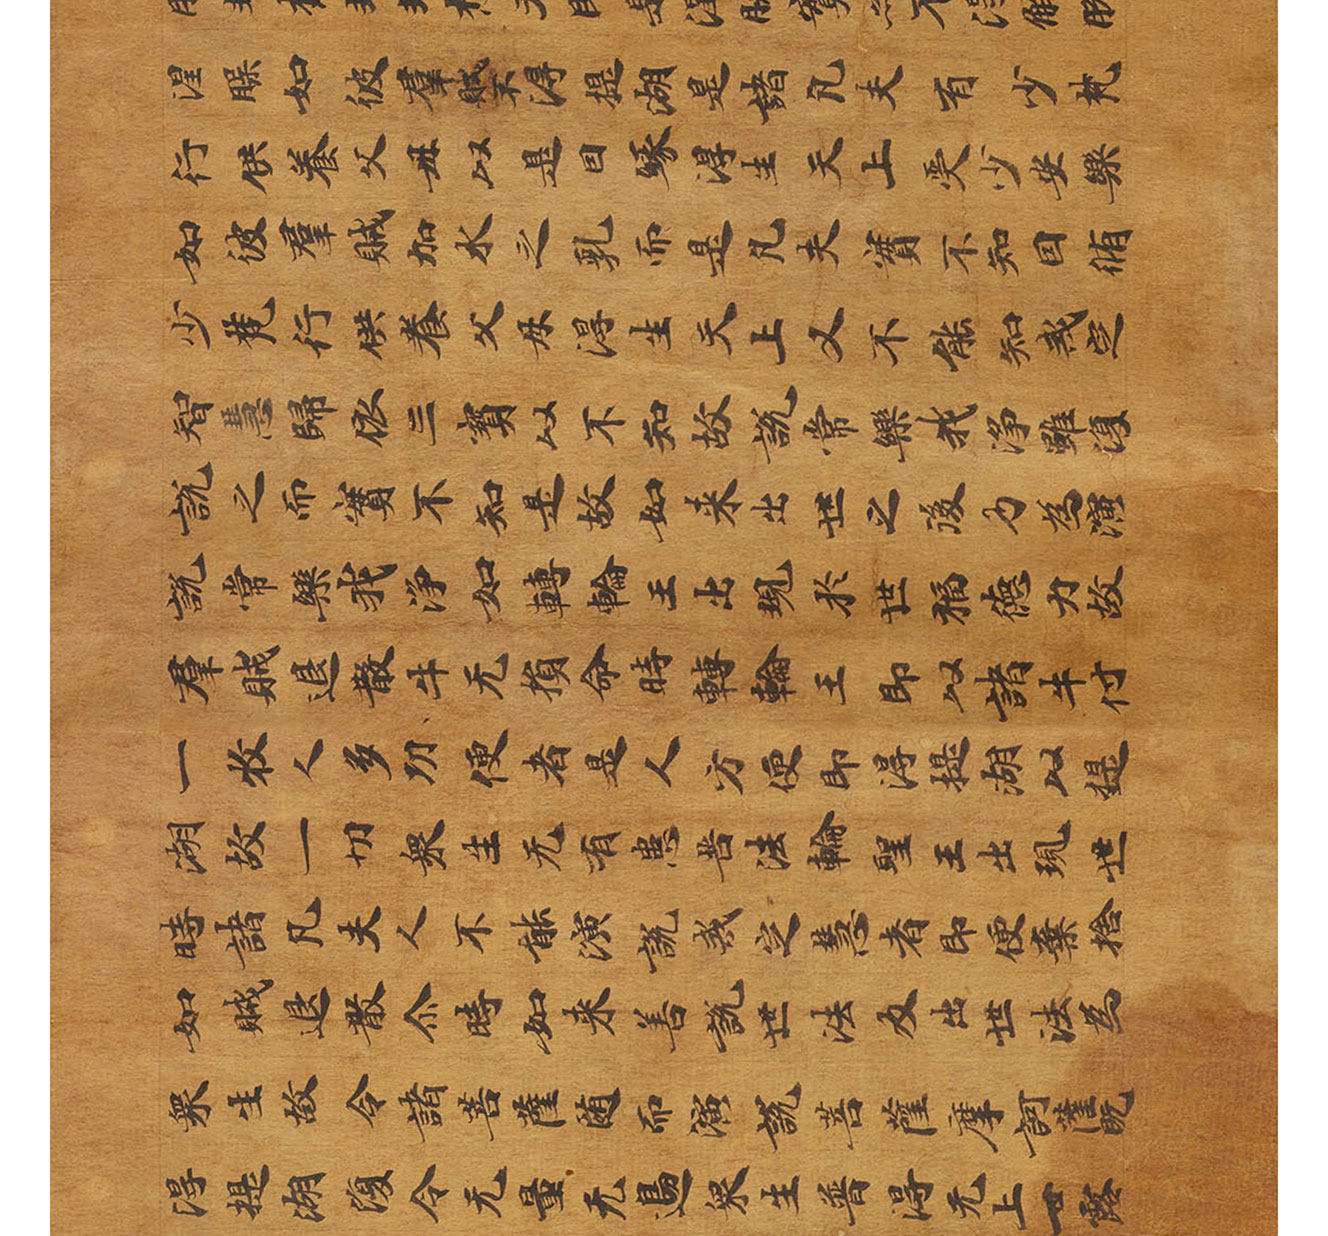 涅槃如彼群賊不得提湖是諸凡夫有少梵
行供養父母以是因緣得生天上受少安樂
如彼群賊加水之乳而是凡夫實不知因脩
少梵行供養父母得生天上又不能知戒定
智慧歸依三寶以不知故說常樂我淨雖復
說之而實不知是故如来出世之後乃為演
說常樂我淨如轉輪王出現於世福德力故
群賊退散牛无損命時轉輪王即以諸牛付
一牧人多巧便者是人方便即得提湖以提
湖故一切衆生无有患苦法輪聖王出現世
時諸凡夫人不能演說戒定慧者即便棄捨
如賊退散尒時如来善說世法及出世法為
衆生故令諸菩薩随而演說菩薩摩訶薩既
得提湖復令无量无邊衆生普得无上甘露